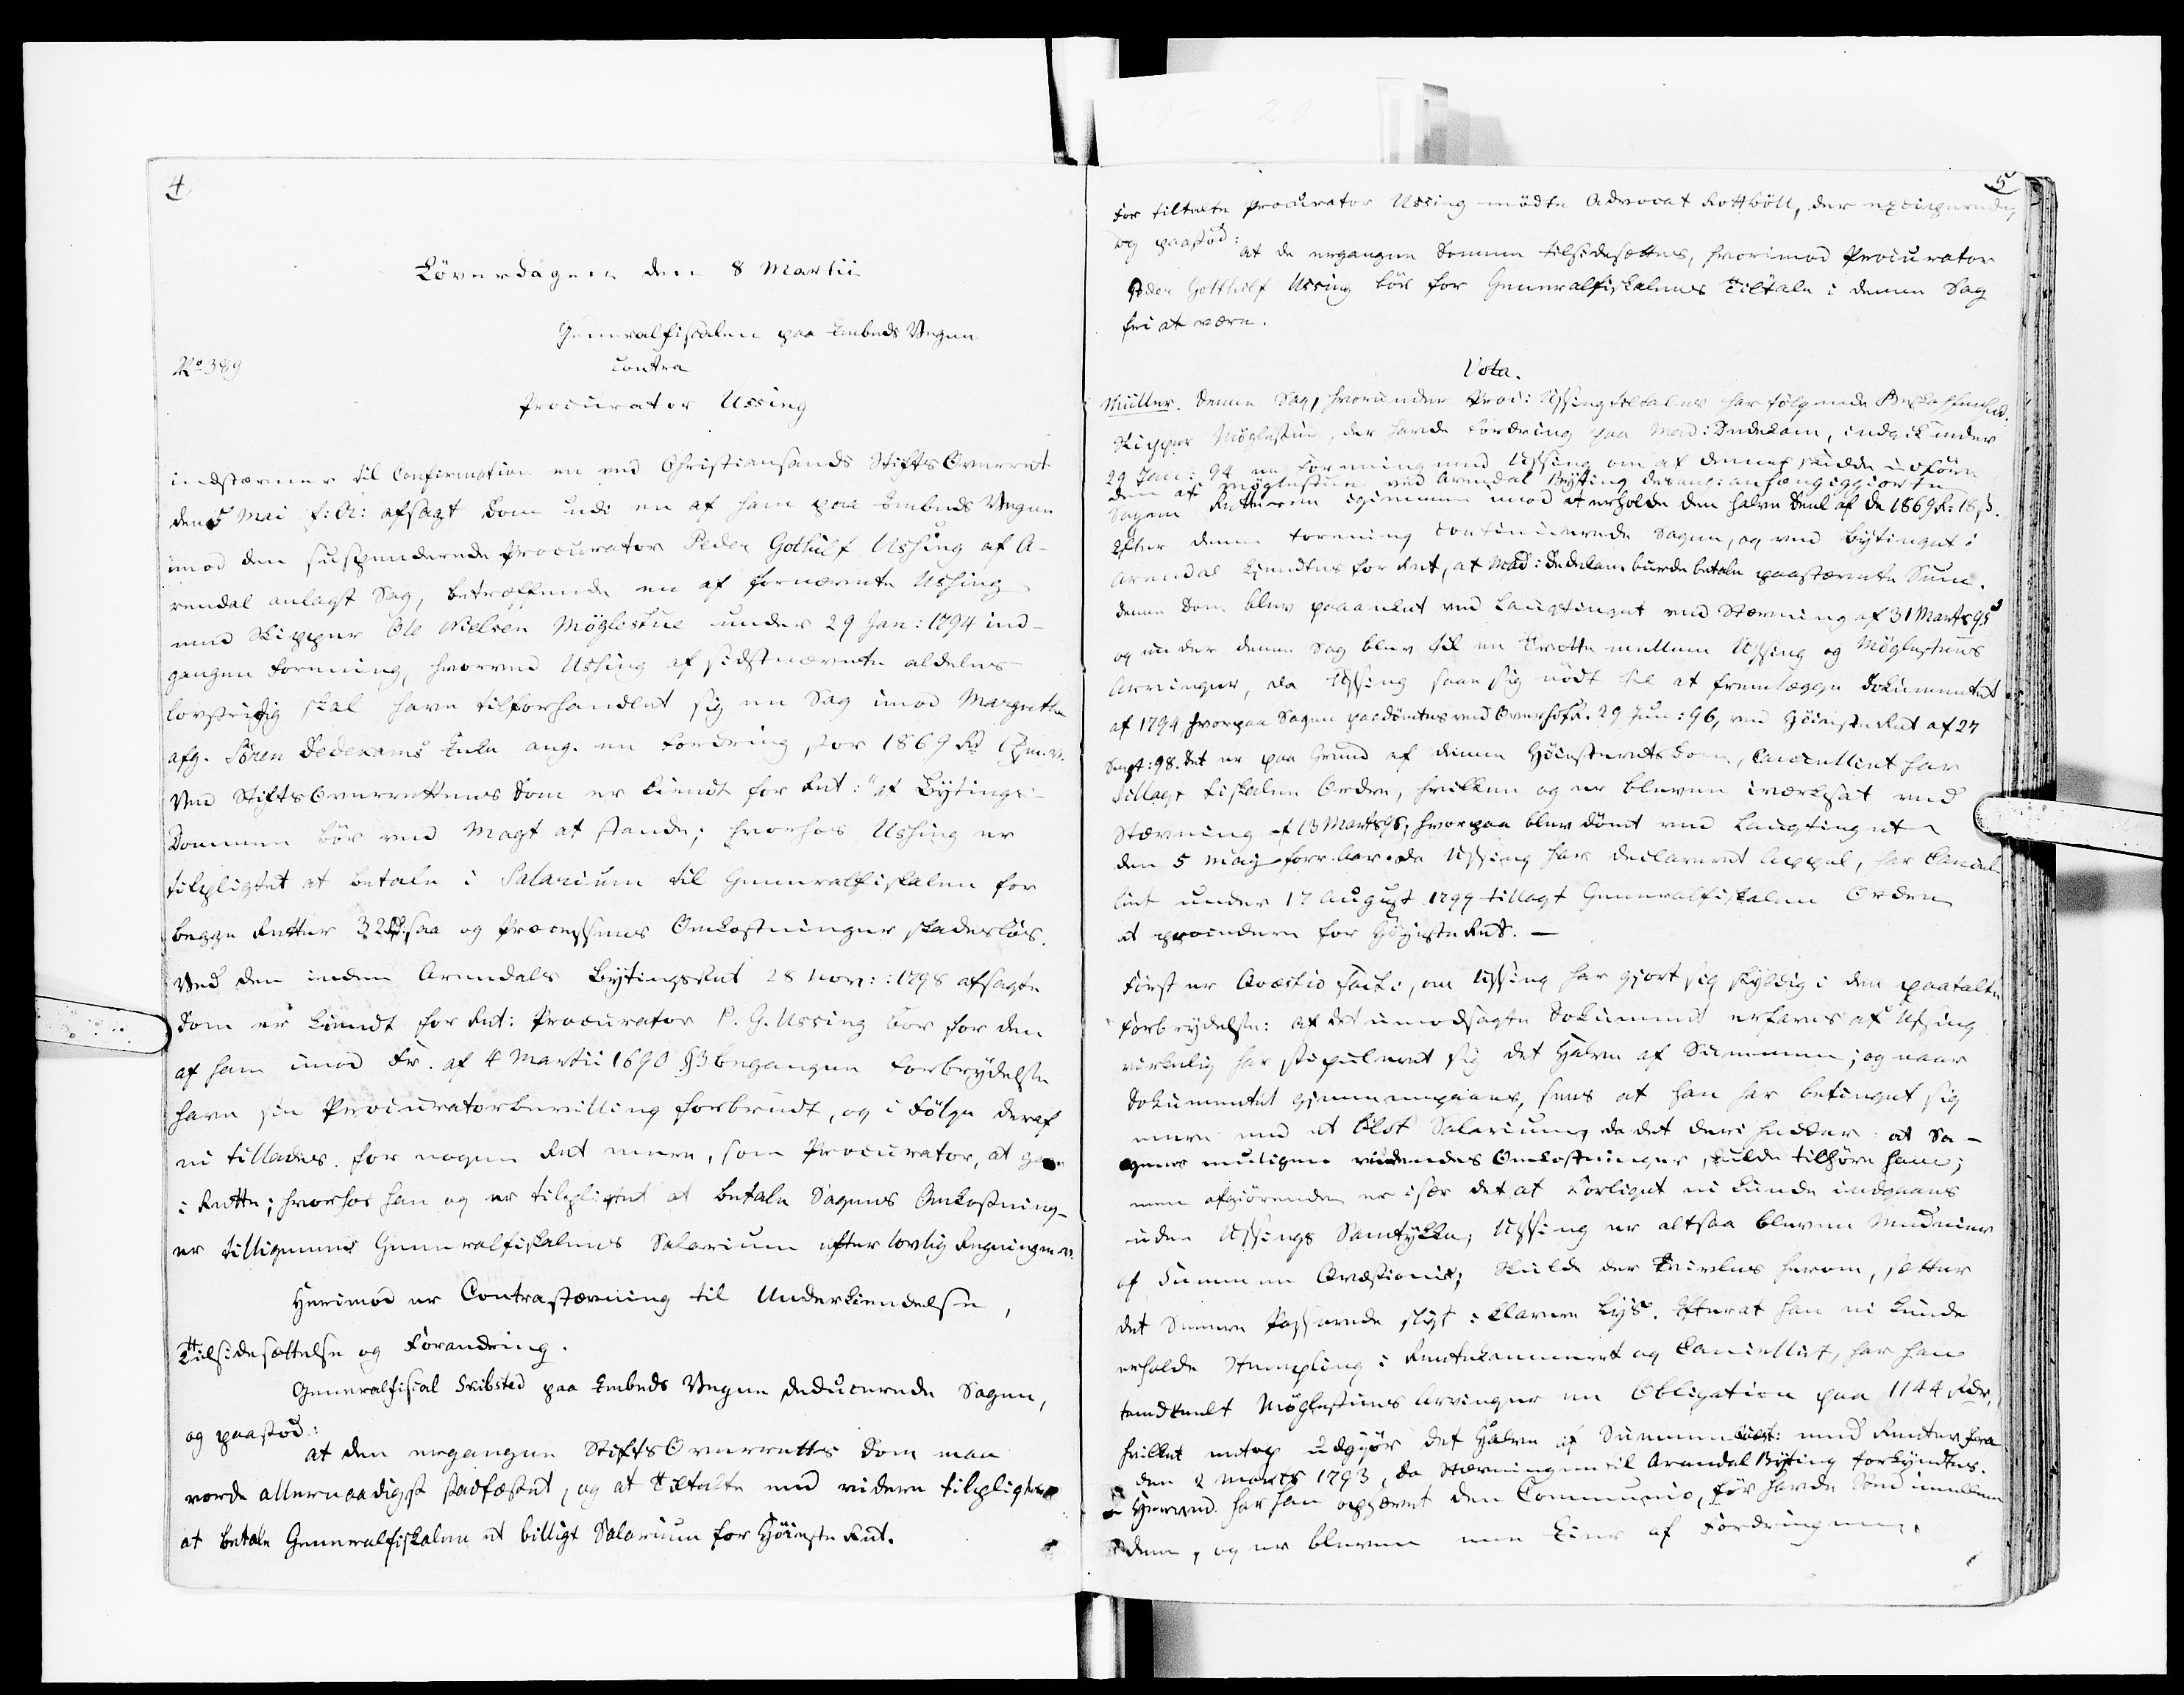 4
Löverdagen den 8 Martii
Generalfiscalen paa Embeds Vegne
No 389
contra
Procurator Ussing
indstævner til Confirmation en ved Christiansands StiftsOverret
den 5 Mai f: A: afsagt Dom udi en af ham paa Embeds Vegne
imod den suspenderede Procurator Peder Gothilf Ussing af A-
rendal anlagt Sag, betræffende en af fornævnte Ussing
med Skipper Ole Nielsen Möglestue under 29 Jan: 1794 ind-
gangen Forening, hvorved Ussing af sidstnævnte aldeles
lovstridig skal have tilforhandlet sig en Sag imod Margrethe
afg. Sören Dedekams Enke ang. en Fordring stor 1869 Rd
Ved StiftsOverrettens Dom er kiendt for Ret: "at Bytings-
Dommen bör ved Magt at stande; hvorhos Ussing er
tilpligtet at betale i Salarium til Generalfiskalen for
begge Retter 32 Rd. saa og Processens Omkostninger skadeslös.
Ved den inden Arendals BytingsRet 28 Nov: 1798 afsagte
Dom er kiendt for Ret: Procurator P. G. Ussing bör for den
af ham imod Fr. af 4 Martii 1690 §3 begangne Forbrydelse
have sin Procuratorbevilling forbrudt, og i Fölge deraf
ei tillades for nogen Ret mere, som Procurator, at gaae
i Rette; hvorhos han og er tilpligtet at betale Sagens Omkostning-
er tilligemed Generalfiskalens Salarium efter lovlig Regning
Herimod er Contrastævning til Underkiendelse,
Tilsidesættelse og Forandring.
Generalfiscal Skibsted paa Embeds Vegne deducerede Sagen,
og paastod:
at den ergangne StiftsOverretts Dom maa
vorde allernaadigst stadfæstet, og at Tiltalte end videre tilpligtes
at betale Generalfiskalen et billigt Salarium for HöiesteRet.
5
For tiltalte Procurator Ussing mödte Advocat Rottböll, der excipierede,
og paastod:
at de ergangne Domme tilsidesættes, hvorimod Procurator
Peder Gotthilf Ussing bör for Generalfiskalens Tiltale i denne Sag
fri at være.
Vota.
Müller. Denne Sag, hvorunder Proc: Ussing tiltales har fölgende Beskaffenhed.
Skipper Möglestue, der havde Fordring paa Mad: Dedekam, indgik under
29 Jan: 94 en Forening med Ussing om at denne skulde udföre
den af Möglestue ved Arendal Byting anhængiggiorte
Sag igiennem imod at erholde den halve Deel af de 1869 R: 18 s.
Efter denne Forening continuerede Sagen, og ved Bytinget i
Arendal kiendtes for Ret, at Mad: Dedekam burde betale paastævnte Sum.
Denne Dom blev paaanket ved Laugtinget ved Stævning af 31 Marts 95
og under denne Sag blev til en Trætte mellem Ussing og Möglestues
Arvinger, da Ussing saae sig nödt til at fremlægge Dokumentet
af 1794 hvorpaa Sagen paadömtes ved Overhofr. 29 Jun: 96, ved HöiesteRet af 27
Sept: 98. Det er paa Grund af denne HöiesteretsDom, Cancelliet har
tillagt Fiskalen Ordre, hvilken og er bleven iværksat ved
Stævning af 13 Marts 98, hvorpaa blev dömt ved Laugtinget
den 5 Maj forr. Aar. Da Ussing har declareret Appel, har Cancel-
liet under 17 August 1799 tillagt Generalfiskalen Ordre
at procedere for HöjesteRet. —
Först er Qvæstio facti, om Ussing har gjort sig skyldig i den paatalte
Forbrydelse: at det umodsagte Dokument erfares at Ussing
virkelig har stipuleret sig det Halve af Summen; og naar
Dokumentet giennemgaaes, sees at han har betinget sig
mere end et blot Salarium, da det deri hedder at Sa-
gens muligen vindendes Omkostninger skulde tilhöre ham;
men afgiörende er især det at Forliget ei kunde indgaaes
uden Ussings Samtykke; Ussing er altsaa bleven Medeier
af Summen Qvæstionis; Skulde der tvivles herom, sætter
det Senere Passerede sligt i klarere Lys. Efterat han ei kunde
erholde Stempling i Rentekammeret og Cancelliet, har han
Möglestues Arvinger en Obligation paa 1144 Rdr,
hvilket netop udgjör det Halve af Summen med Renter fra
den 2 Marts 1793, da Stævningen til Arendal Byting forkyndtes.
Herved har han ophævet den Communio, för havde Sted imellem
dem, og er bleven ene Eier af Fordringen.